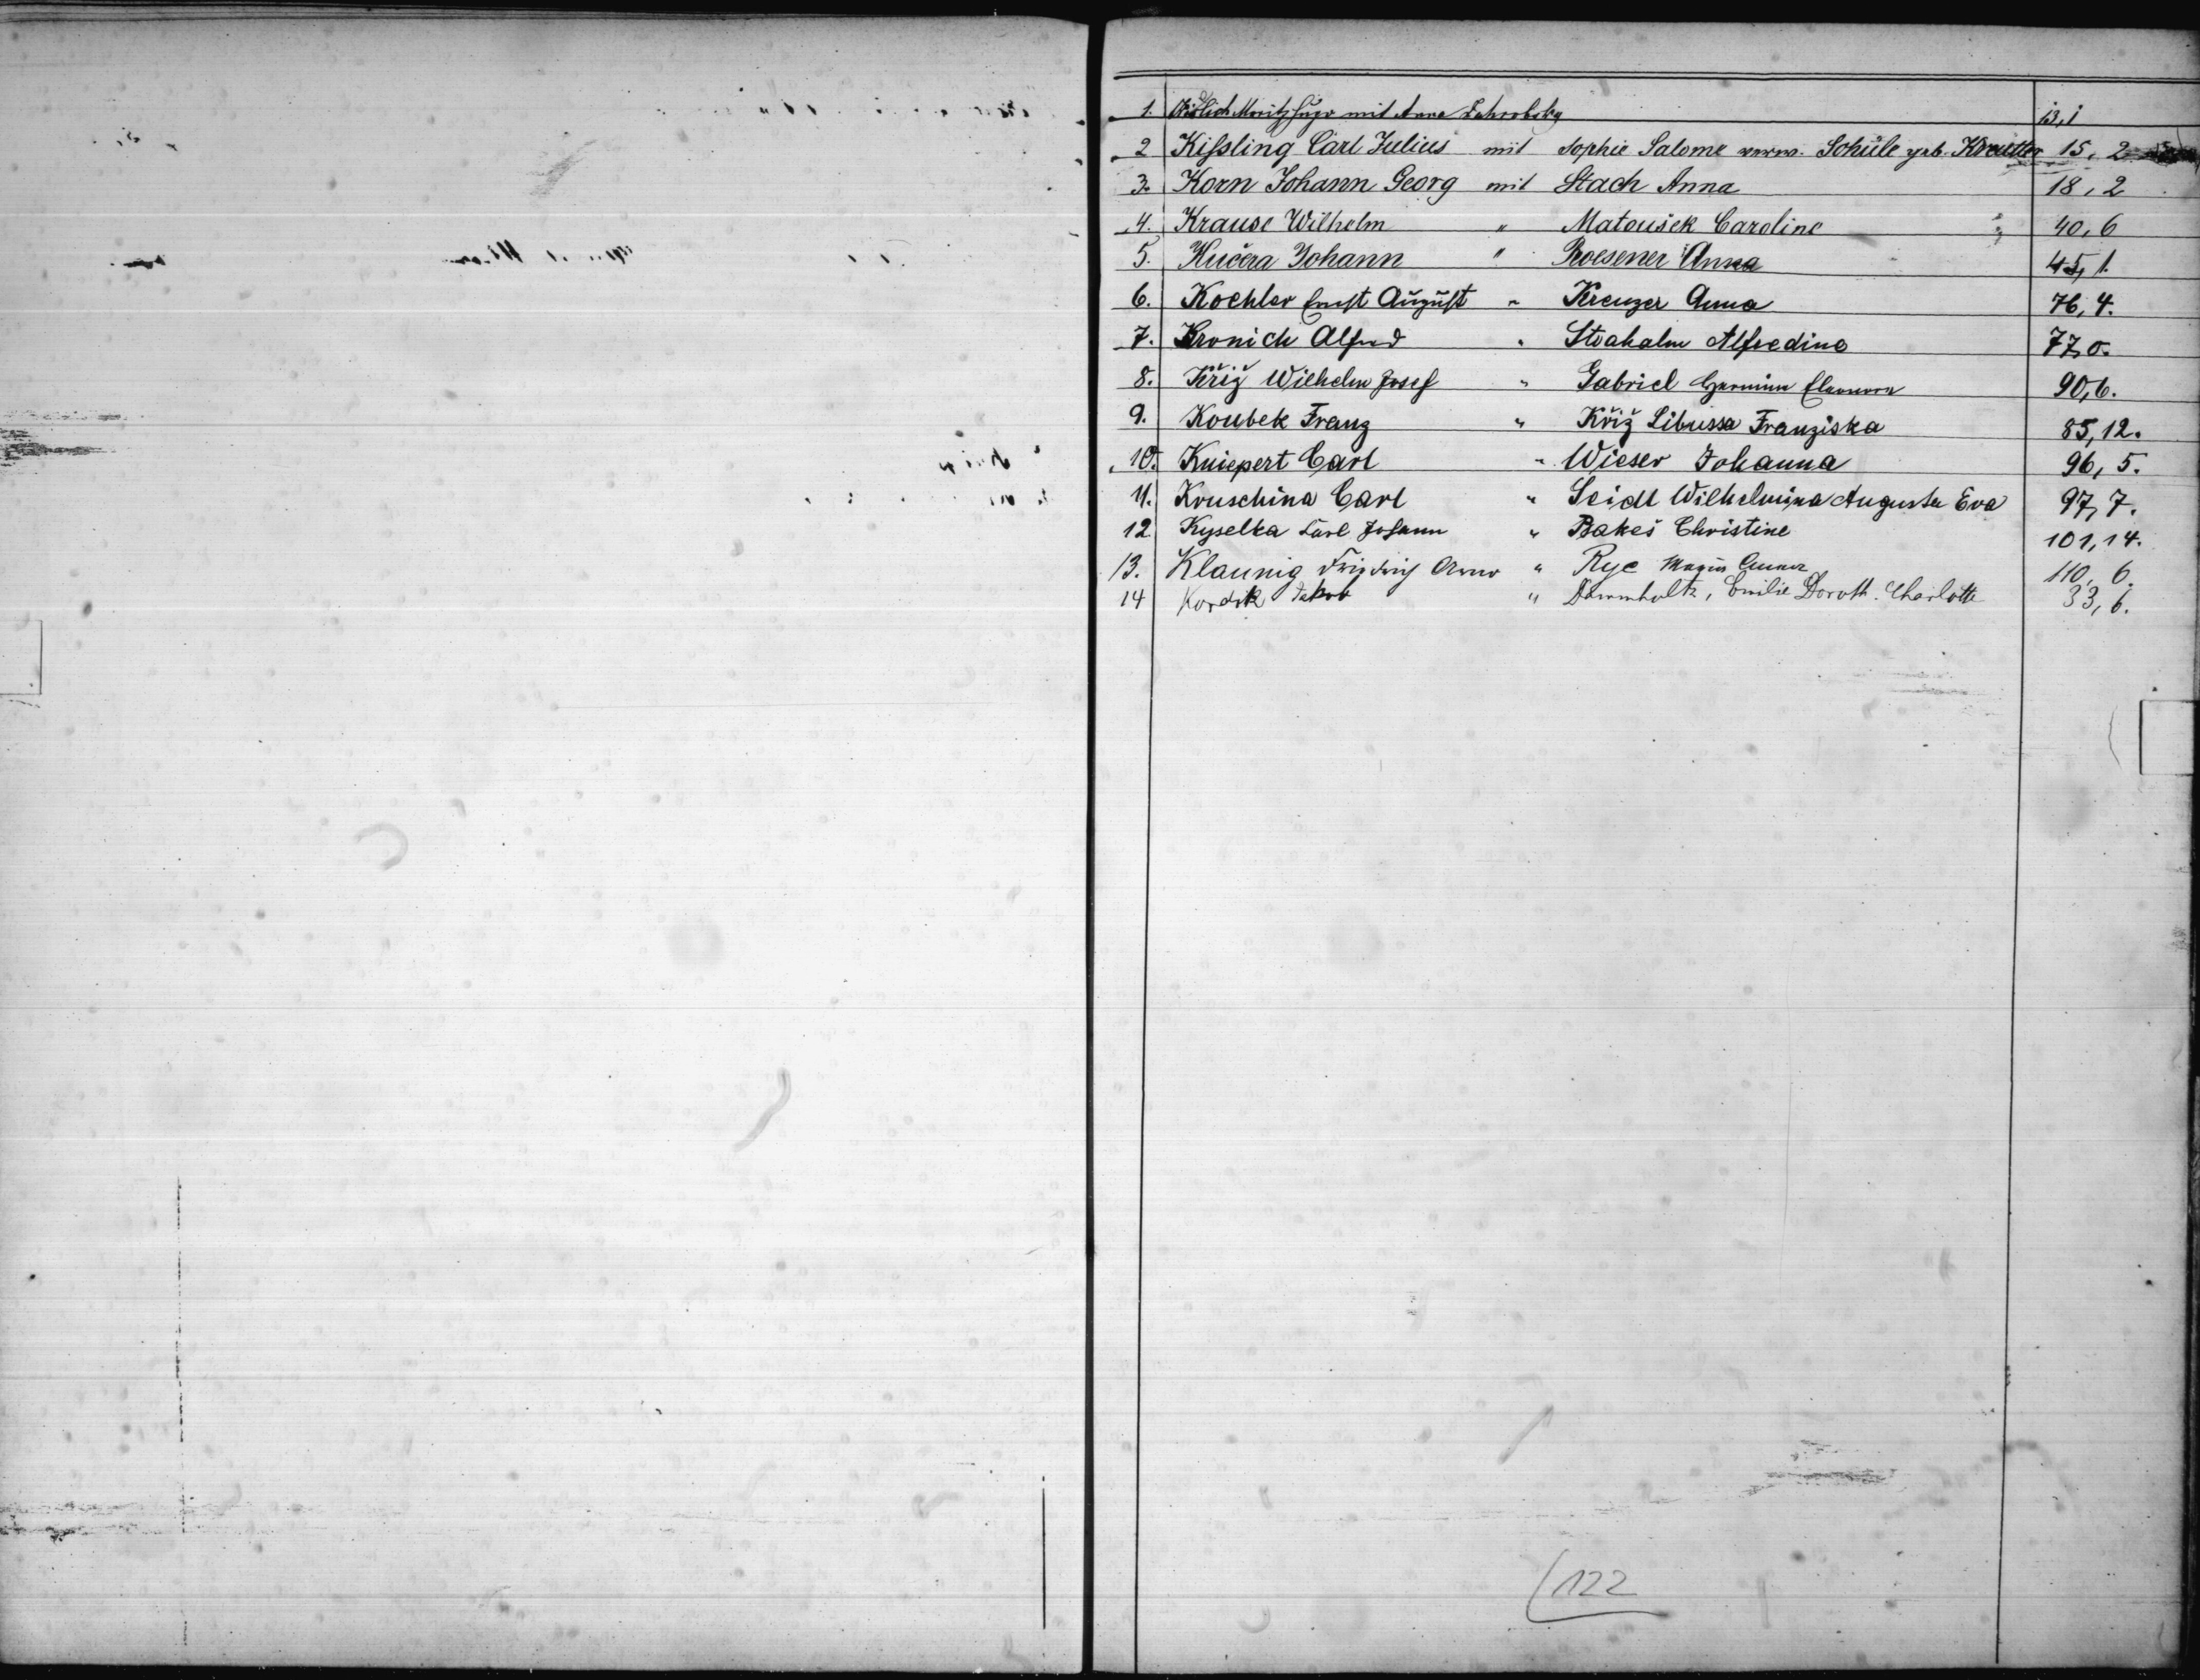 1. Moritz Hugo mit Anna Zahrobsky 13,1
2 Kißling Carl Julius mit Sophie Salome verw. Schüle geb. Kreutler 15,2
3. Korn Johann Georg mit Stach Anna 18,2
4. Krause Wilhelm " Matoušek Caroline 40,6
5. Kučera Johann " Roesener Anna 45,1.
6. Koehler Ernst August " Kreuzer Anna 76,4.
7. Kronich Alfred " Alfredine 77,
8. Kříž Wilhelm Josef " Gabriel Hermine Eleonora 90,6.
9. Koubek Franz " Kříž Libussa Franziska 85,12.
10. Kniepert Carl " Wieser Johanna 96,5.
11. Kruschina Carl " Seidl Wilhelmina Augusta Eva 97,7.
12 Kyselka Karl Johann " Bakeš Christine 101,14.
13. Klaunig Friedrich Arno " Rye Anna 110,6.
14 Kordik Jakob " Dammholtz, Emilie Doroth. Charlotte 33,6.
122